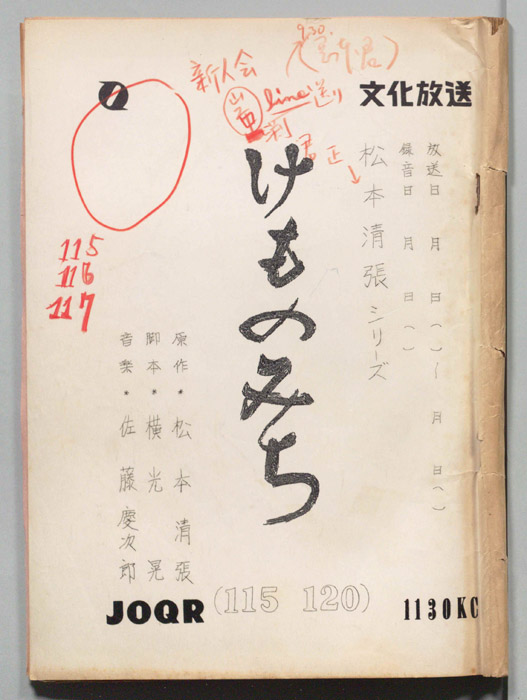 新人会
line送り
文化放送
放送日 月 日( )〜 月 日( )
録音日 月 日( )
正
松本清張シリーズ
けものみち
115
116
117
原作・松本清張
脚本・横光晃
音楽・佐藤慶次郎
JOQR (115 120) 1130KC